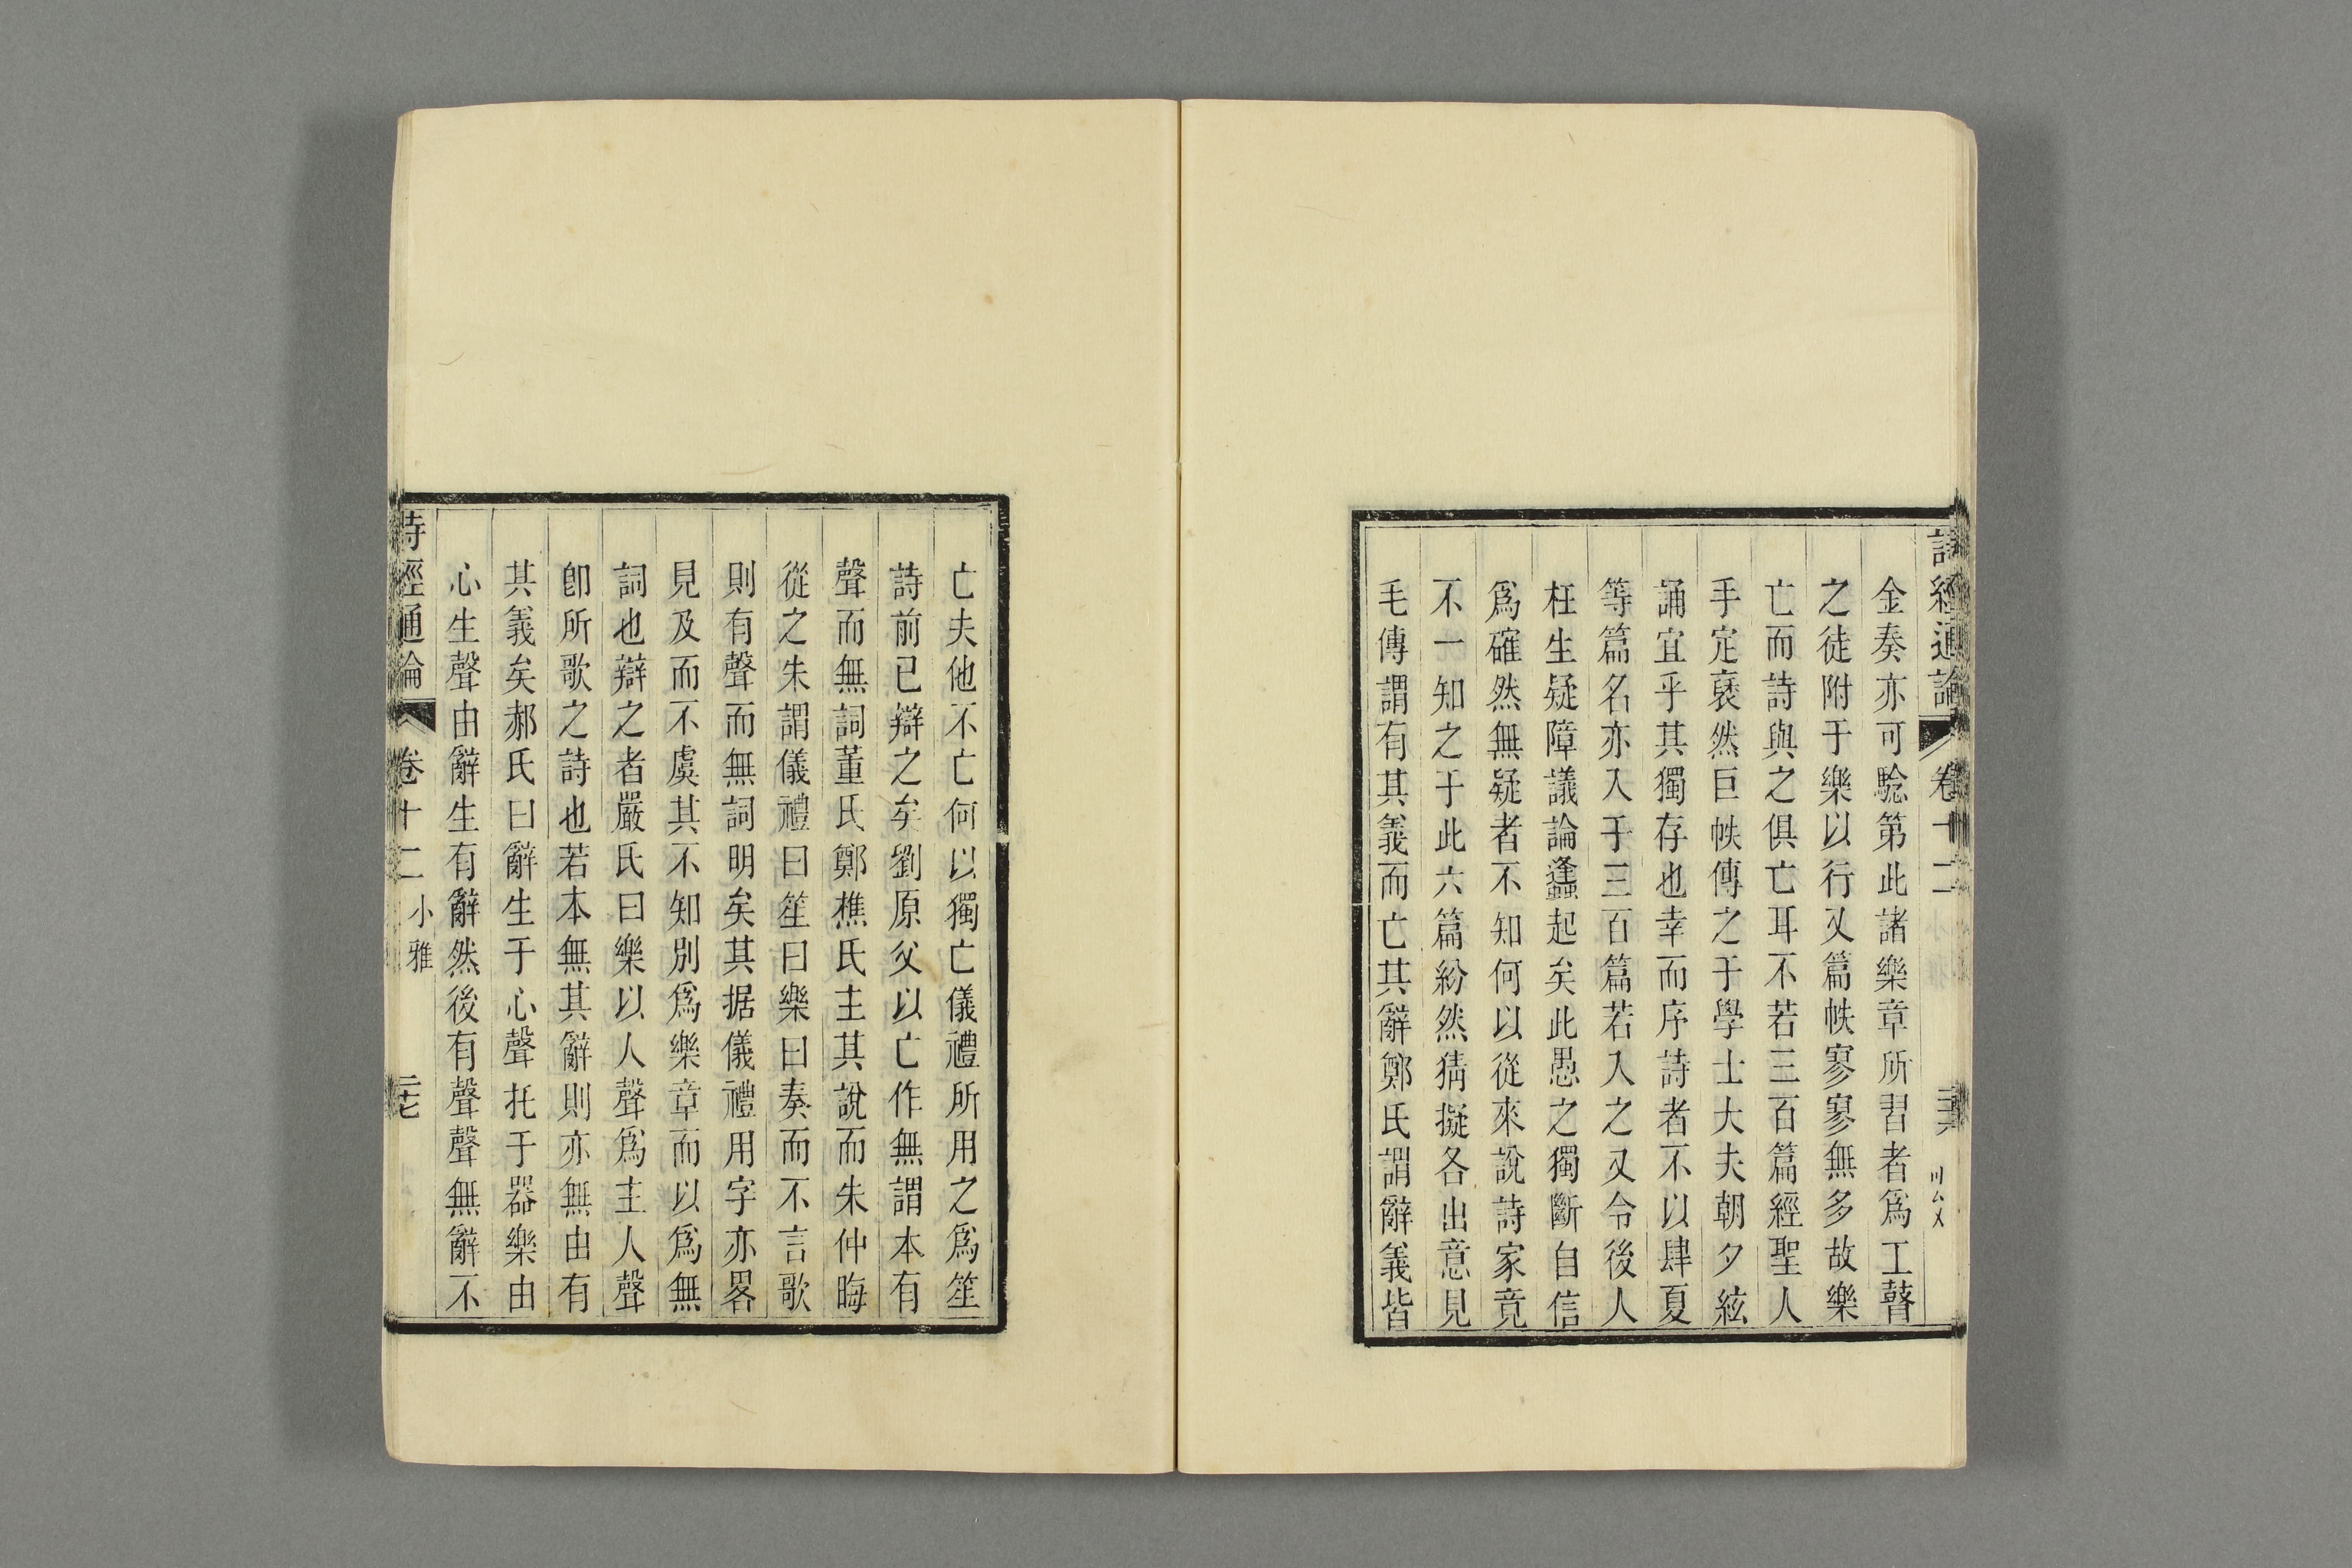 詩經通論 卷十二 小雅 二十六
金奏亦可騐第此諸樂章所習者爲工瞽
之徒附于樂以行又篇帙寥寥無多故樂
亡而詩與之俱亡耳不若三百篇經聖人
手定裦然巨帙傳之于學士大夫朝夕絃
誦宜乎其獨存也幸而序詩者不以肆夏
等篇名亦入于三百篇若入之又令後人
枉生疑障議論蠭起矣此愚之獨斷自信
爲確然無疑者不知何以從來說詩家竟
不一知之于此六篇紛然猜擬各出意見
毛傳謂有其義而亡其辭鄭氏謂辭義皆
亡夫他不亡何以獨亡儀禮所用之爲笙
詩前已辯之矣劉原父以亡作無謂本有
聲而無詞董氏鄭樵氏主其說而朱仲晦
從之朱謂儀禮曰笙曰樂曰奏而不言歌
則有聲而無詞明矣其据儀禮用字亦畧
見及而不虞其不知別爲樂章而以爲無
詞也辯之者嚴氏曰樂以人聲爲主人聲
卽所歌之詩也若本無其辭則亦無由有
其義矣郝氏曰辭生于心聲托于器樂由
心生聲由辭生有辭然後有聲聲無辭不
詩經通論 卷十二 小雅 二十七